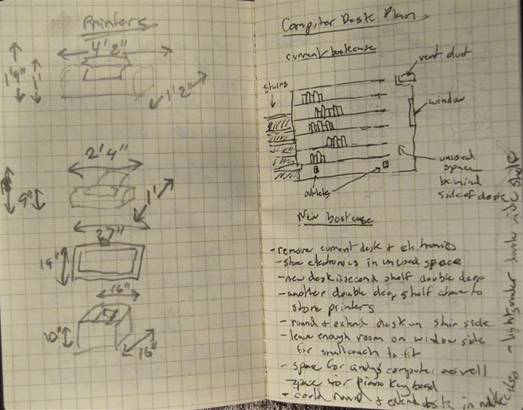 Printers
4' 2"
1' 9"
1'
1' 2"
2' 4"
9"
1'
27"
19"
16"
10"
16"
Computer Desk Plan
current bookcase
vent duct
stairs
window
unused
space
behind
side of desk
outlets
New bookcase
- remove current desk & electronics
- store electronics in unused space
- new desk is second shelf double deep
- another double deep shelf above to
store printers
- round & extend desk on stair side
- leave enough room on window side
for small couch to fit
- space for andy's computer as well
- space for piano keyboard
- could round & extend desk in
- lights under side shelf